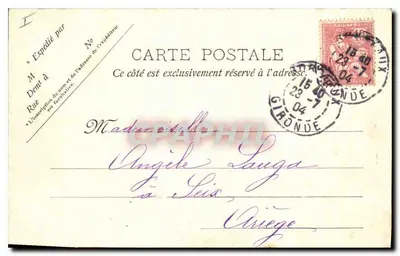 I
* Expédié par
M
Demt à
Rue
N°
* L'inscription du nom et de l'adresse de l'expéditeur
est facultative.
CARTE POSTALE
Ce côté est exclusivement réservé à l'adresse
BORDEAUX
15 40
23-7
04
GIRONDE
BORDEAUX
15 40
23-7
04
GIRONDE
Mademoiselle
Angèle Lauga
à Seix
Ariège